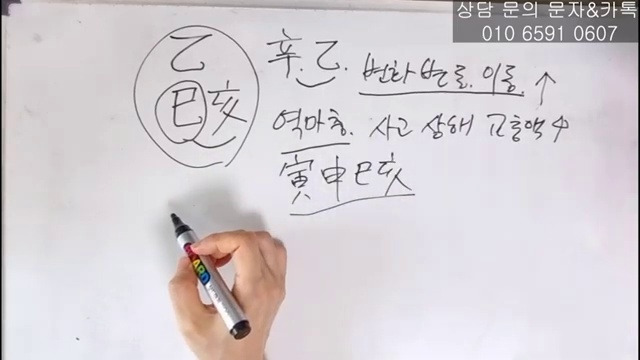 상담 문의 문자&카톡
010 6591 0607
乙 辛.乙. 변화 변동. 이동. ↑
巳亥 역마충. 사고 상해 고혈액 ↑
寅申巳亥